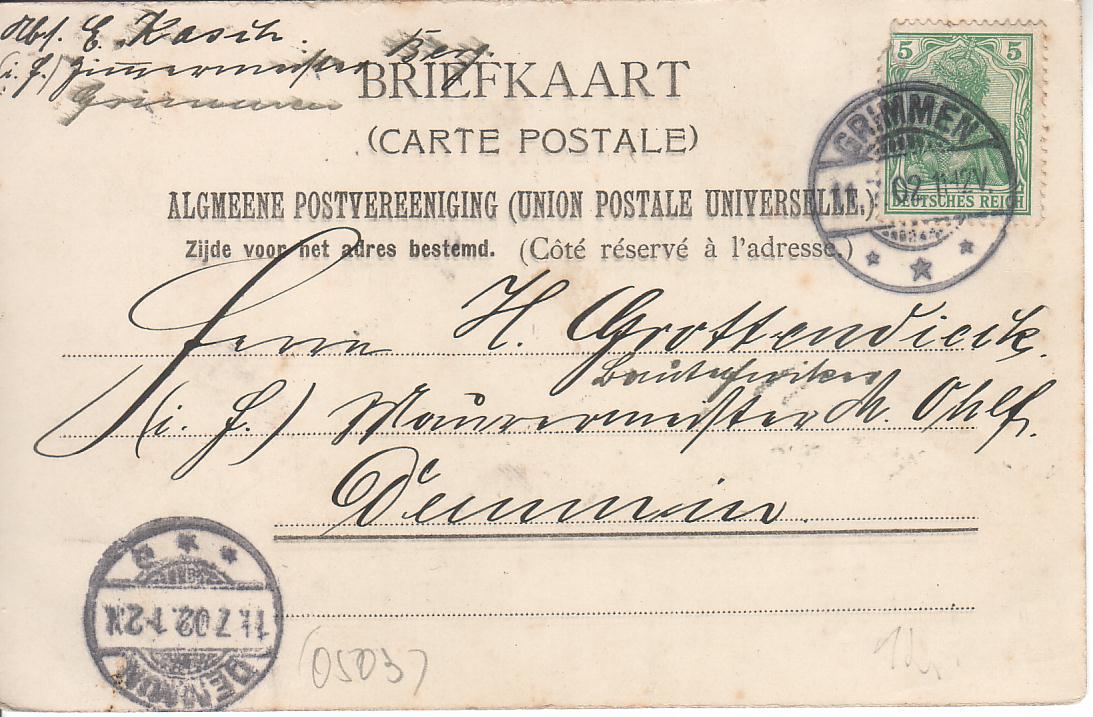 Abs. E. Kasch.
(i. F.) Zimmermeister Berg
Grimmen
BRIEFKAART
(CARTE POSTALE)
ALGMEENE POSTVEREENIGING (UNION POSTALE UNIVERSELLE.)
Zijde voor het adres bestemd. (Côté réservé à l'adresse.)
5 5
DEUTSCHES REICH
GRIMMEN
11 02 11-12V.
Herrn H. Grottendieck.
(i. F.) Maurermeister A. Ohlf.
Demmin.
11.7.02.1-2N
DEMMIN
(0503)